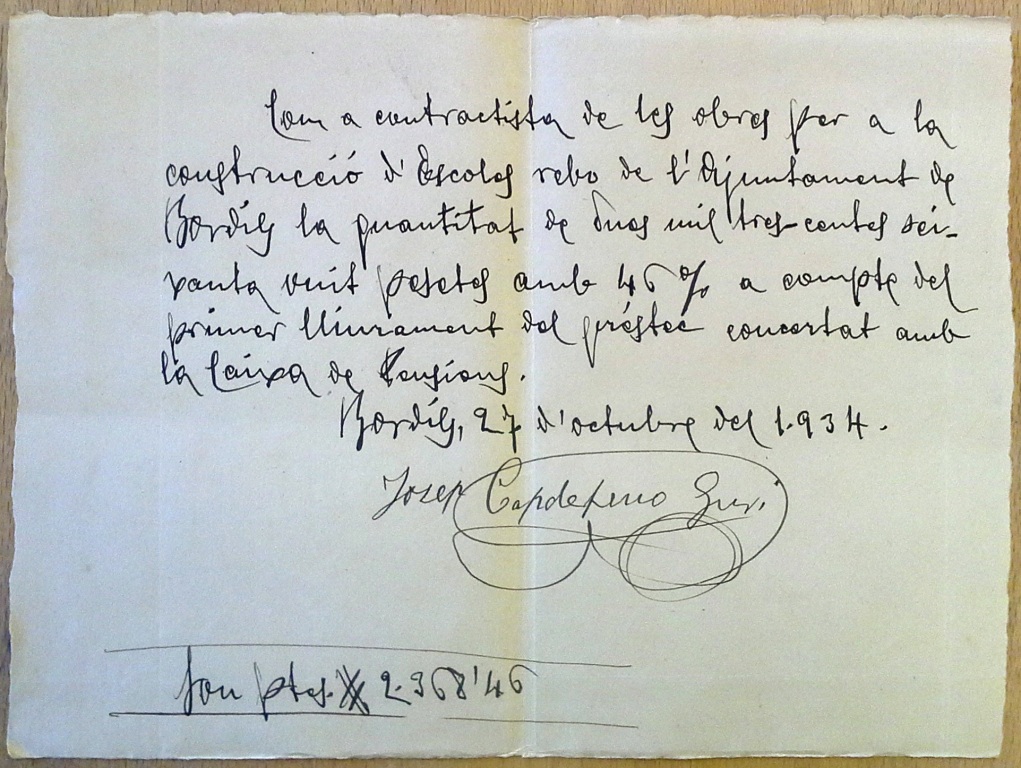 Com a contractista de les obres per a la
construcció d'Escoles rebo de l'Ajuntament de
Bordils la quantitat de dues mil tres-centes sei-
xanta vuit pesetes amb 46 % a compte del
primer lliurament del préstec concertat amb
la Caixa de Pensions.
Bordils, 27 d'octubre del 1.934.
Josep Capdeferro
Son ptes. 2.368'46